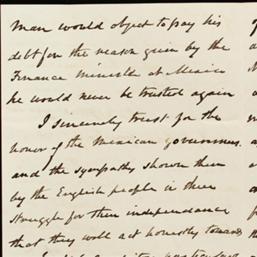 man would object to pay his
debt for the reason given by the
Finance Minister at Mexico
he would never be trusted again
I sincerely trust for the
honor of the Mexican government
and the sympathy shown them
by the English people in their
struggle for their independence
that they will act honestly towards